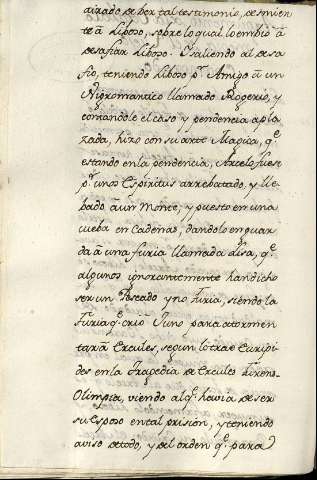 airado de ber tal testimonio, desmien-
te á Liboso, sobre lo qual lo embió á
desafiar Liboso. Y saliendo al desa
fio, teniendo Liboso pr. Amigo á un
Nigromantico llamado Rogerio, y
contandole el caso y pendencia apla
zada, hizo con su arte Magica, qe.
estando en la pendencia, Arcelo fuese
pr. unos Espiritus arrebatado, y lle-
bado á un Monte, y puesto en una
cueba en Cadenas, dandolo en guar
da á una furia llamada Lisa, qe.
algunos ignorantemente han dicho
ser un Pescado y no Furia, siendo la
Furia qe. crió Juno para atormen
tar á Ercules, segun lo trae Euripi
des en la Tragedia de Ercules
Olimpia, viendo al qe. havia de ser
su Esposo en tal prision, y teniendo
aviso de todo, y del orden qe. para